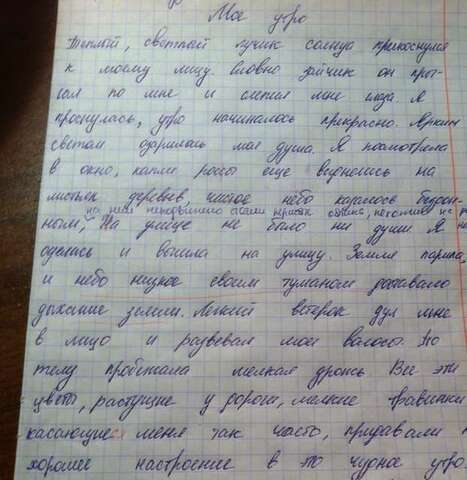 Мое утро
Теплый, светлый лучик солнца прикоснулся
к моему лицу. Словно зайчик он прыг-
гал по мне и слепил мне глаза. Я
проснулась, утро начиналось прекрасно. Ярким
светом озарилась моя душа. Я посмотрела
в окно, капли росы еще виднелись на
листьях деревьев, чистое небо казалось бездон-
на нем неподвижно стояли перистые облака, непохожие на
ным, На улице не было ни души Я
оделась и вышла на улицу. Земля парила,
и небо низкое своим туманом доставало
дыхание земли. Легкий ветерок дул мне
в лицо и развевал мои волосы. По
телу пробежала мелкая дрожь. Все эти
цветы, растущие у дороги, мелкие травинки
касающиеся меня так часто, придавали
хорошее настроение в то чудное утро.